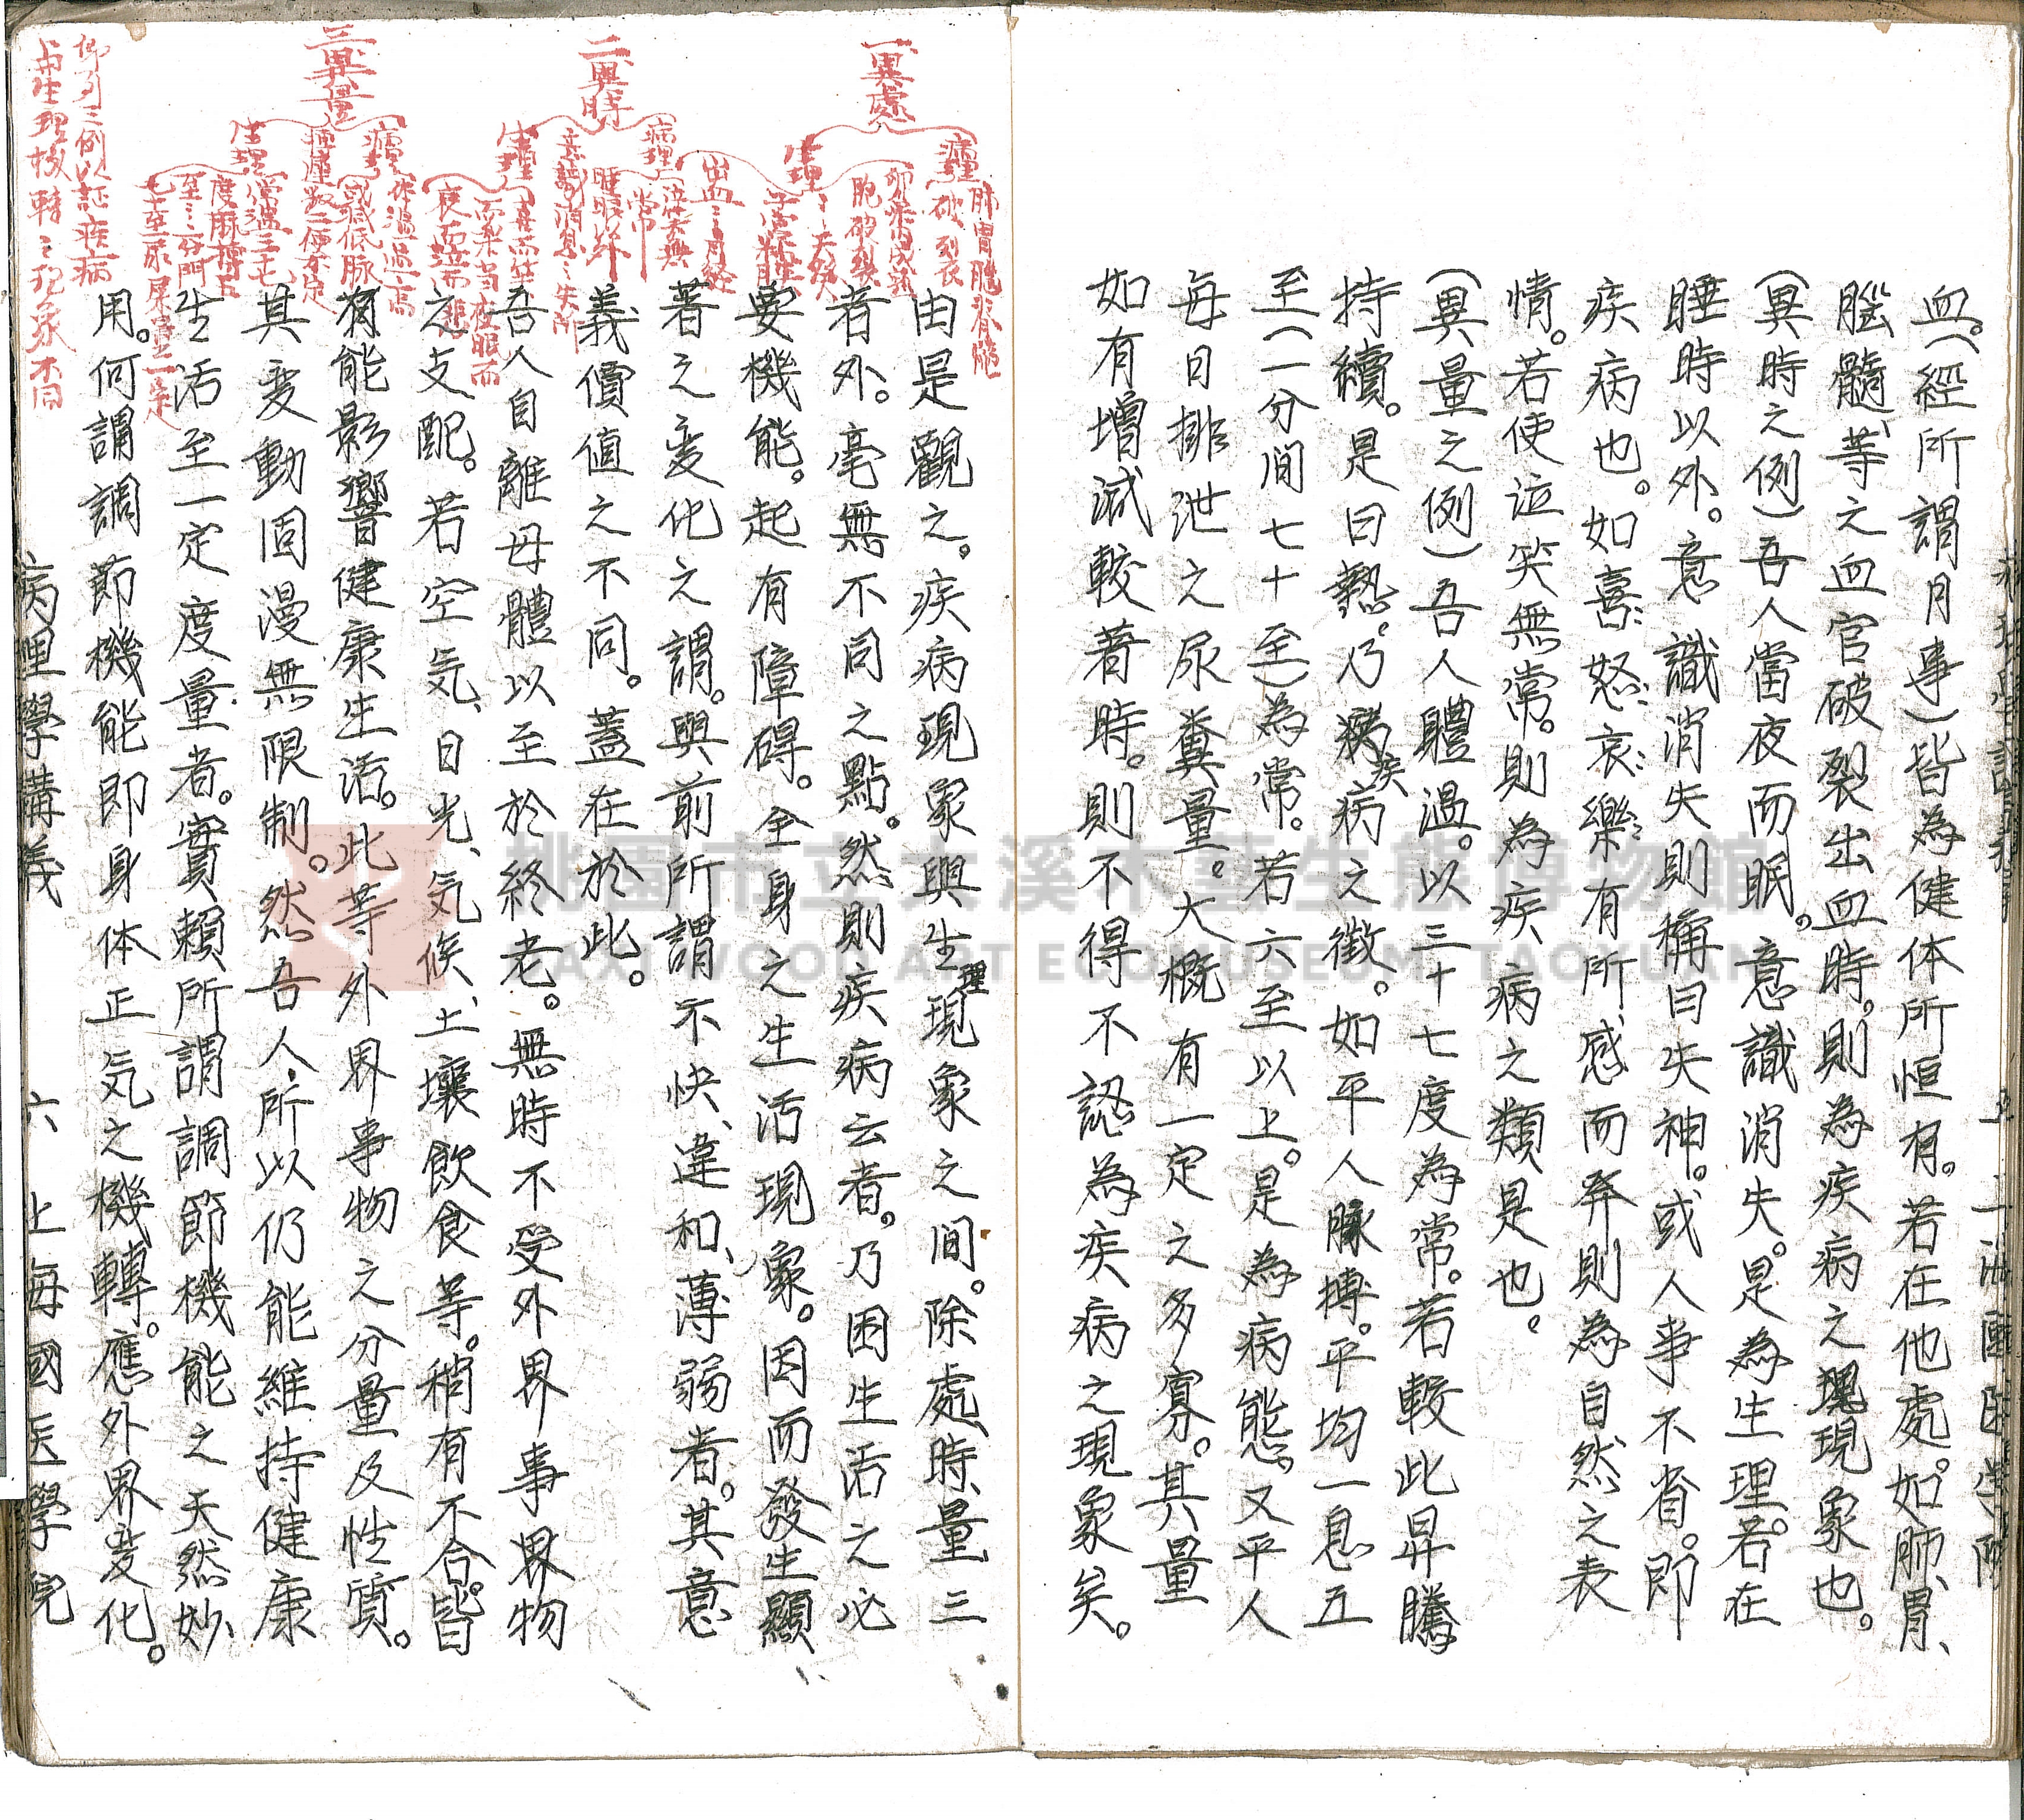 血。(經所謂月事)皆為健体所恒有。若在他處。如肺、胃、
腦髓、等之血官破裂出血時。則為疾病之現象也。
(異時之例)吾人當夜而眠。意識消失。是為生理。若在
睡時以外。意識消失則稱曰失神。或人事不省。即
疾病也。如喜怒哀樂有所感而弆則為自然之表
情。若使泣笑無常。則為疾病之類是也。
(異量之例)吾人體温。以三十七度為常。若較此昇騰
持續。是曰熱。乃疾病之徵。如平人脉搏。平均一息五
至(一分间七十至)為常。若六至以上。是為病態。又平人
每日排泄之尿糞量。大概有一定之多寡。其量
如有增減較著時。則不得不認為疾病之現象矣。
由是觀之。疾病現象與生理現象之间。除處、時、量三
者外。毫無不同之點。然則疾病云者。乃因生活之必
要機能。起有障碍。全身之生活現象。因而發生顯
著之変化之謂。與前所謂不快、違和、薄弱者。其意
義價值之不同。蓋在於此。
吾人自離母體以至於終老。無時不受外界事界物
之支配。若空気、日光、気候、土壤飲食等。稍有不合。皆
有能影響健康生活。此等外界事物之分量及性質。
其変動固漫無限制。然吾人所以仍能維持健康
生活至一定度量者。實賴所謂調節機能之天然妙
用。何謂調節機能即身体正気之機轉。應外界変化。
病理學講義 六 上海國医學院
一異處
病理
肺胃腦脊髓
破裂
生理
卵巢內成熟
胞破裂
出血
月経
二異時
病理
睡眠以外
意識消息之失神
生理
當夜眠而
三異量
病理
体温過高
或減低脉
生理
常温三七
度脉搏五
至
尿屎量一定
仰列三例以証疾病
與生理機轉之現象不同
桃園市立大溪木藝生態博物館
DAXI WOOD ART ECOMUSEUM, TAOYUAN